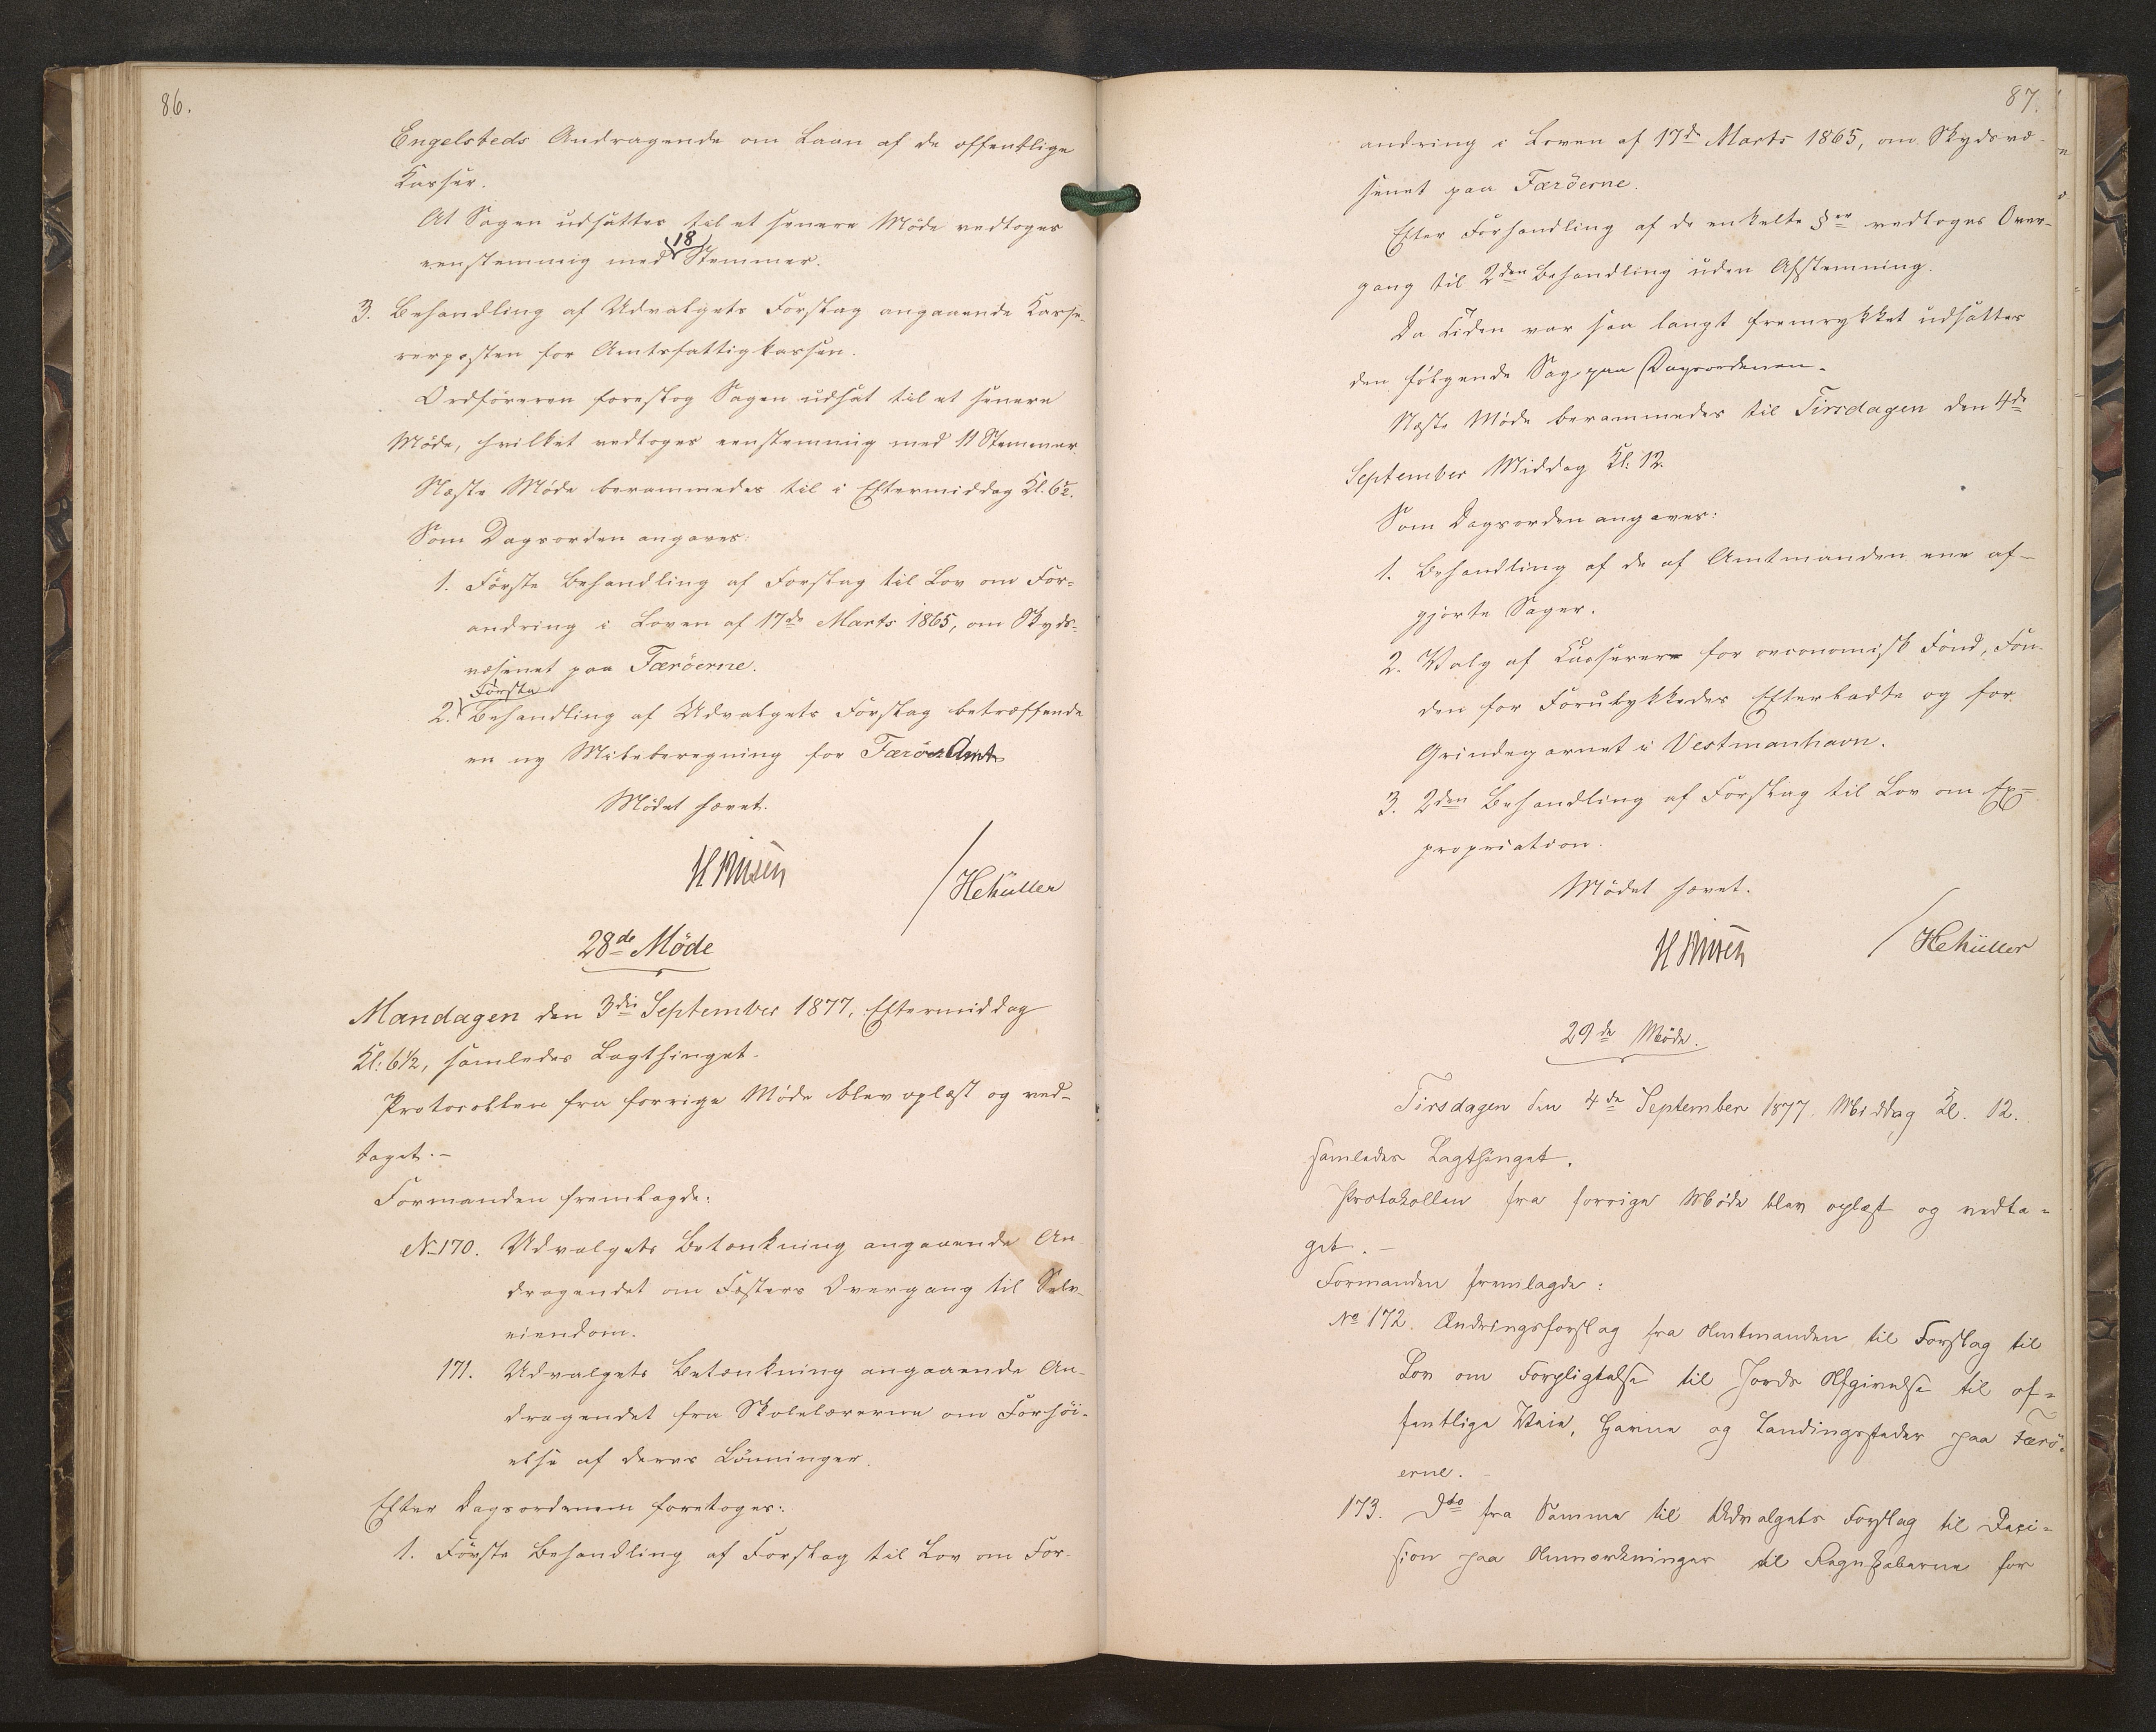 86.
Engelsteds Andragende om Laan af de offentlige
Kasser.
At Sagen udsattes til et senere Möde vedtoges
eenstemmig med 18 Stemmer.
3. Behandling af Udvalgets Forslag angaaende Kasse-
rerposten for Amtsfattigkassen.
Ordföreren foreslog Sagen udsat til et senere
Möde, hvilket vedtoges eenstemmig med 11 Stemmer.
Næste Möde berammedes til i Eftermiddag Kl. 6½.
Som Dagsorden angaves:
1. Förste Behandling af Forslag til Lov om For-
andring i Loven af 17de Marts 1865, om Skyds-
væsenet paa Færöerne.
2. Förste Behandling af Udvalgets Forslag betræffende
en ny Mileberegning for Færö Amt
Mödet hævet.
HMüller
28de Möde
Mandagen den 3die September 1877, Eftermiddag
Kl: 6½, samledes Lagthinget.
Protocollen fra forrige Möde blev oplæst og ved-
taget.-
Formanden fremlagde:
No 170. Udvalgets Betænkning angaaende An-
dragendet om Fæsters Overgang til Selv-
eiendom.
171. Udvalgets Betænkning angaaende An-
dragendet fra Skolelærerne om Forhöi-
else af deres Lönninger.
Efter Dagsordenen foretoges:
1. Förste Behandling af Forslag til Lov om For-
87.
andring i Loven af 17de Marts 1865, om Skydsvæ-
senet paa Færöerne.
Efter Forhandling af de enkelte §er vedtoges Over-
gang til 2den Behandling uden Afstemning.
Da Tiden var saa langt fremrykket udsattes
den fölgende Sag paa Dagsordenen.
Næste Möde berammedes til Tirsdagen den 4de
September Middag Kl: 12.
Som Dagsorden angaves:
1. Behandling af de af Amtmanden ene af-
gjorte Sager.
2. Valg af Kasserere for oeconomisk Fond, Fon-
den for Forulykkedes Efterladte og for
Grindegarnet i Vestmanhavn.
3. 2den Behandling af Forslag til Lov om Ex-
propriation.
Mödet hævet.
HMüller
29de Möde.
Tirsdagen den 4de September 1877. Middag Kl. 12.
samledes Lagthinget.
Protokollen fra forrige Möde blev oplæst og vedta-
get.-
Formanden fremlagde:
No 172. Ændringsforslag fra Amtmanden til Forslag til
Lov om Forpligtelse til Jords Afgivelse til of-
fentlige Veie, Havne og Landingssteder paa Færö-
erne.
173. Dto fra Samme til Udvalgets Forslag til Deci-
sion paa Anmærkninger til Regnskaberne for